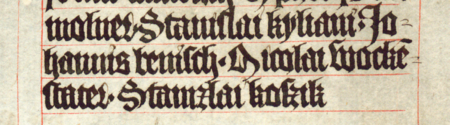 moluer · Stanislai kyliani · Jo-
hannis benisch · Nicolai wocke-
stater · Stanizlai koszik